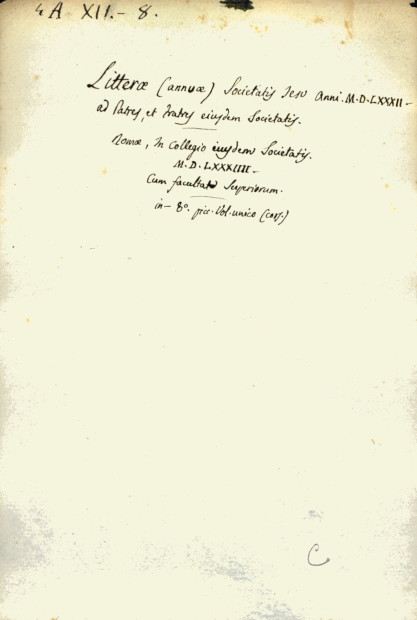 4 A XII.- 8.
Litteræ (annuæ) Societatis Jesu Anni M.D.LXXXII-
ad Patres, et Fratres eiusdem Societatis.
Romæ, In Collegio eiusdem Societatis.
M.D.LXXXIIII-
Cum facultate Superiorum.
in- 8º. picc. Vol. unico
C